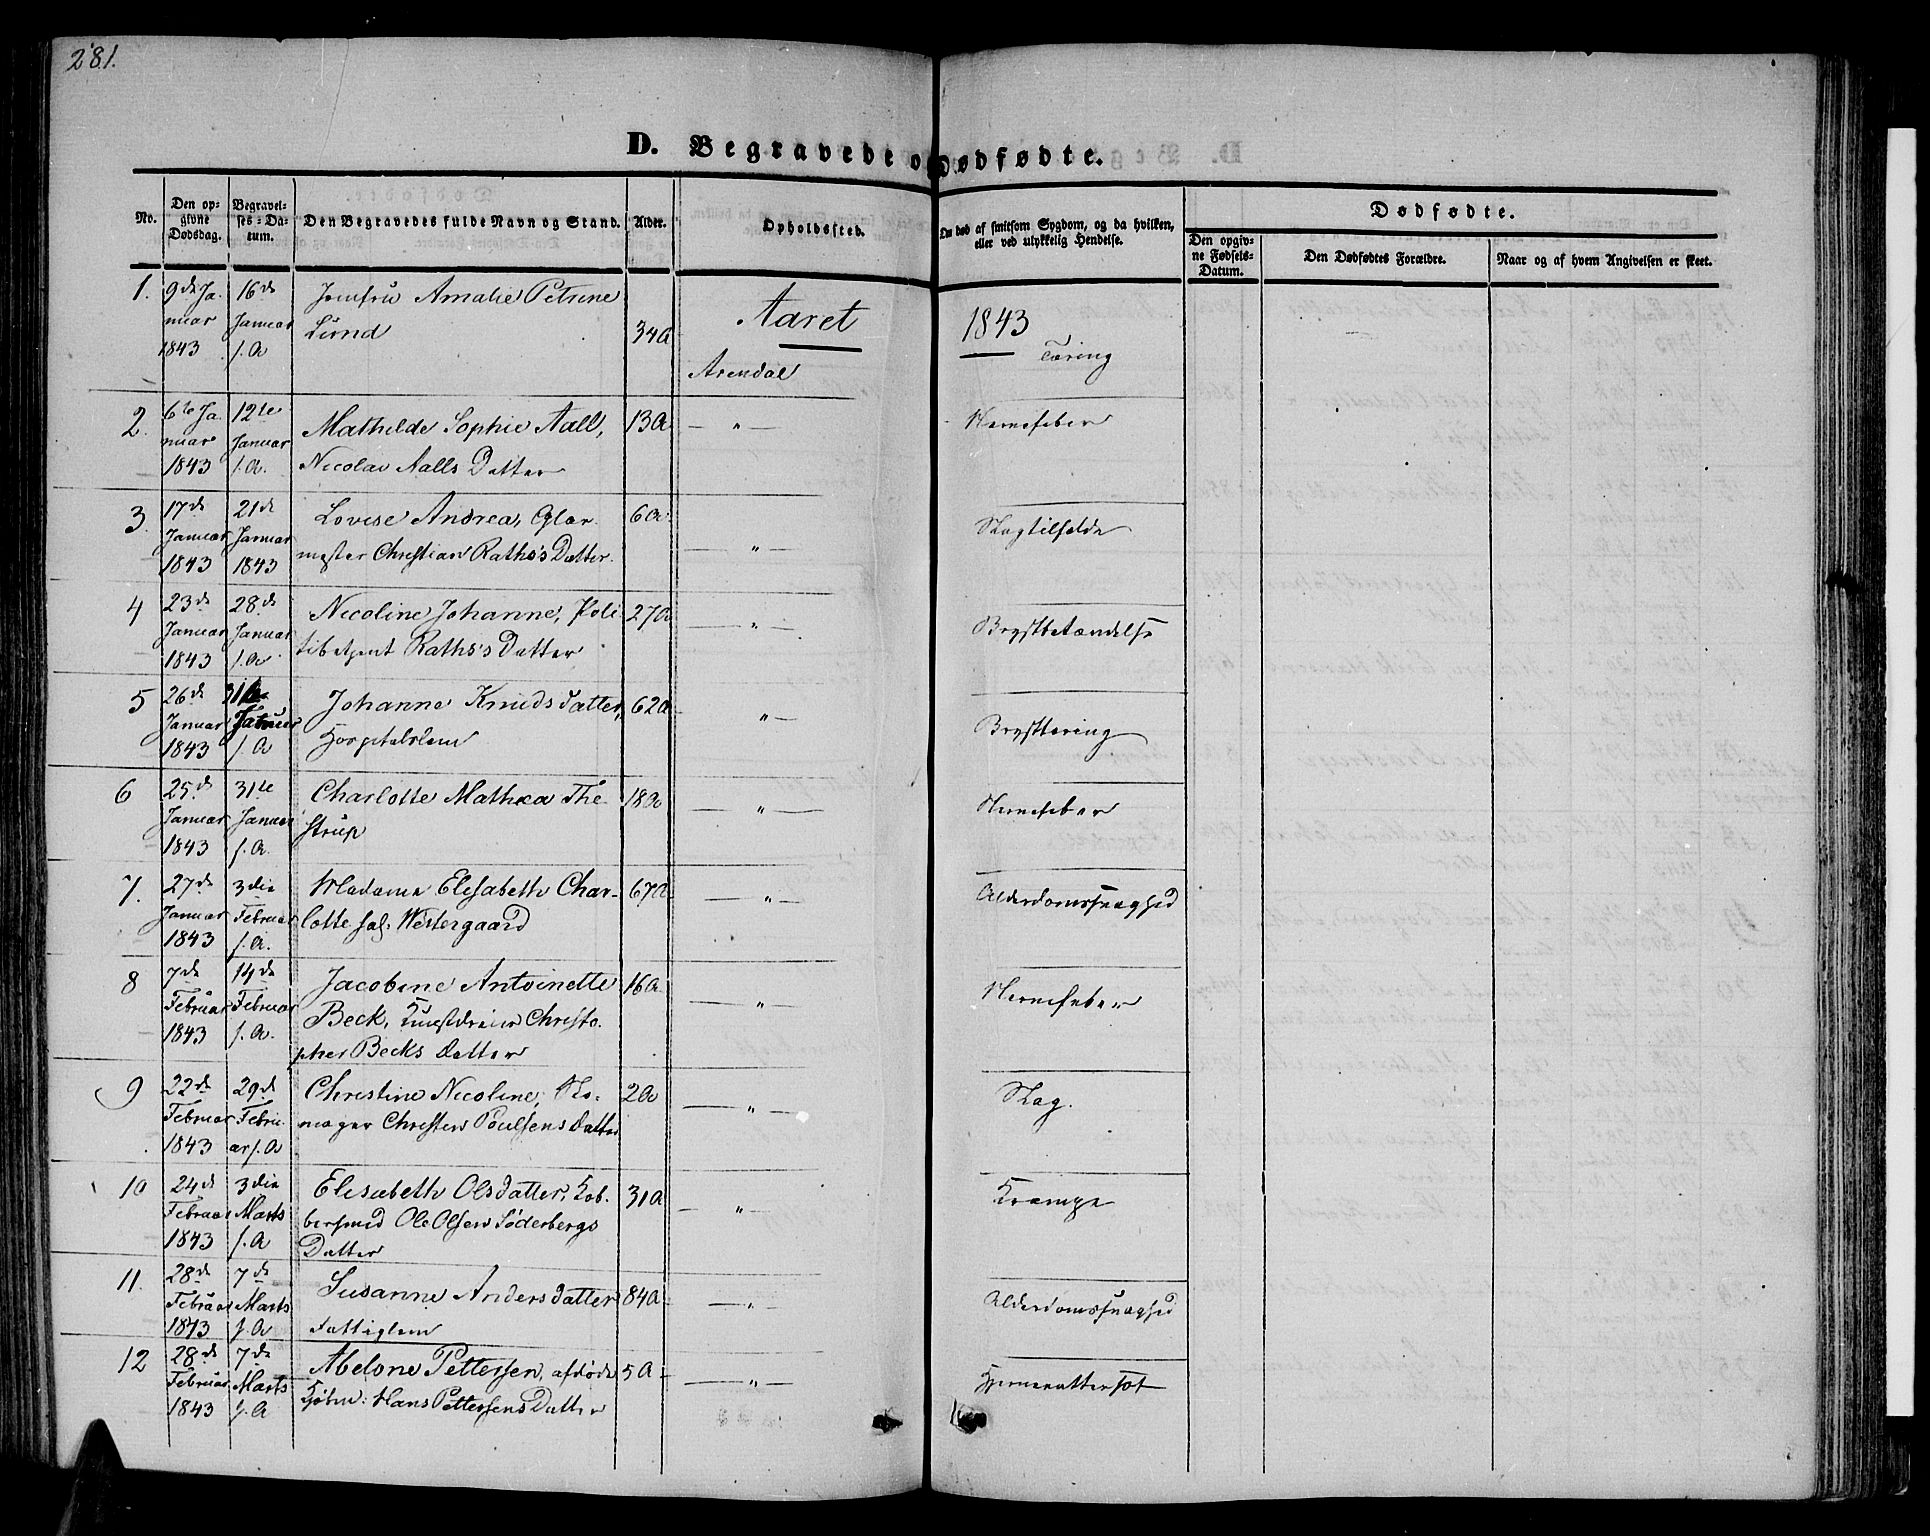 281.
D. Begravede og Dødfødte.
No.
Den opgivne Dødsdag.
Begravelses-Datum.
Den Begravedes fulde Navn og Stand.
Alder.
Opholdssted.
Om død af smitsom Sygdom, og da hvilken, eller ved ulykkelig Hendelse.
Dødfødte.
Den opgivne Fødsels-Datum.
Den Dødfødtes Forældre.
Naar og af hvem Angivelsen er skeet.
Aaret 1843
1. 9de Januar 1843 16de Januar s. A Jomfru Amalie Petrine Lund 34a Arendal Tæring
2. 6te Januar 1843 12te Januar s. A. Mathilde Sophie Aall, Nicolai Aalls Datter 13a — " — Nervefeber
3. 17de Januar 1843 21de Januar 1843 Lovise Andrea, Glarmester Christian Raths's Datter. 6a — " — Slagtilfælde
4 23de Januar 1843 28de Januar s. A Nicoline Johanne, Politibetjent Raths's Datter 27a — " — Brystbetændelse
5 26de Januar 1843 31te Januar s. A Johanne Knudsdatter, Hospitalslem 62a — " — Brysttæring
6 25de Januar 1843 31te Januar s. A. Charlotte Mathea Thestrup 18a — " — Nervefeber
7. 27de Januar 1843 3die Februar s. A. Madame Elisabeth Charlotte sal. Westergaard 67a — " — Alderdomssvaghed
8 7de Februar 1843 14de Februar s. A. Jacobine Antoinette Beck, Kunstdreier Christopher Becks Datter 16a — " — Nervefeber
9 22de Februar 1843 29de Februar s. A Christine Nicoline, Skomager Christen Poulsens Datter 2a — " — Slag.
10 24de Februar 1843 3die Marts s. A Elisabeth Olsdatter, Kobbersmed Ole Olsen Söderbergs Datter 31a — " — Krampe
11. 28de Februar 1843 7de Marts s. A Susanne Andersdatter Fattiglem 84a — " — Alderdomssvaghed
12 28de Februar 1843 7de Marts s. A Abelone Pettersen, afdøde Kjøbm: Hans Pettersens Datter 5a — " — Hjernevattersot